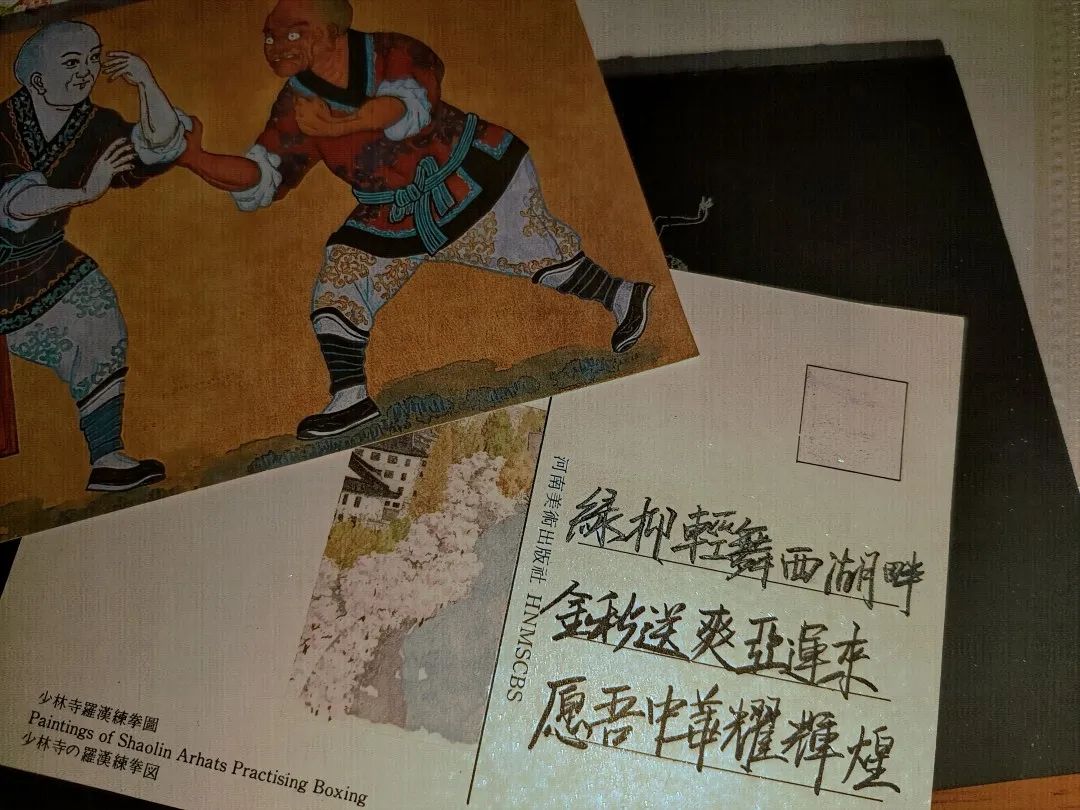 河南美術出版社 HNMSCBS
綠柳輕舞西湖畔
金秋送爽亞運來
愿吾中華耀輝煌
少林寺羅漢練拳圖
Paintings of Shaolin Arhats Practising Boxing
少林寺の羅漢練拳図